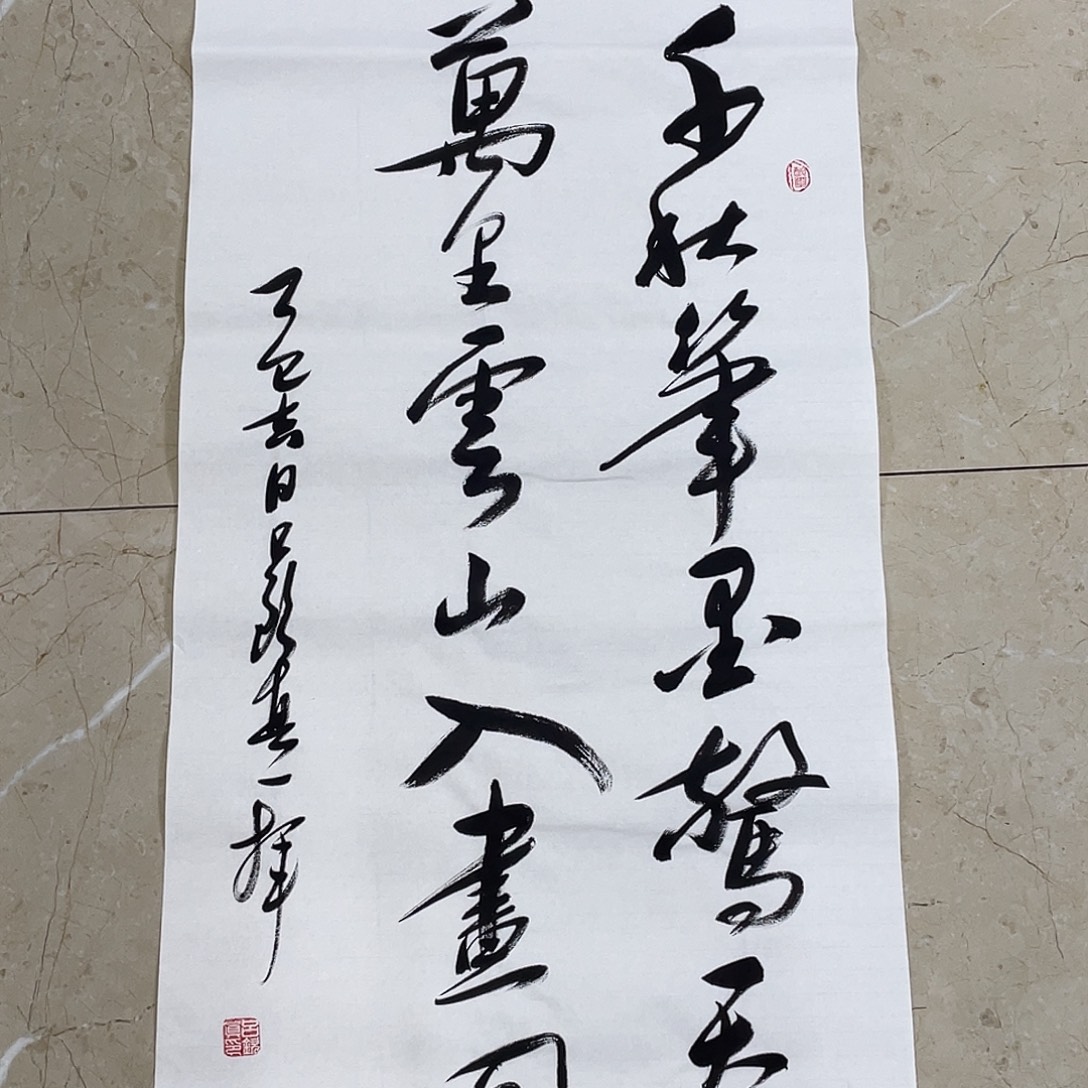 千秋筆墨驚天
萬里雲山入畫
乙巳吉日吕真一揮